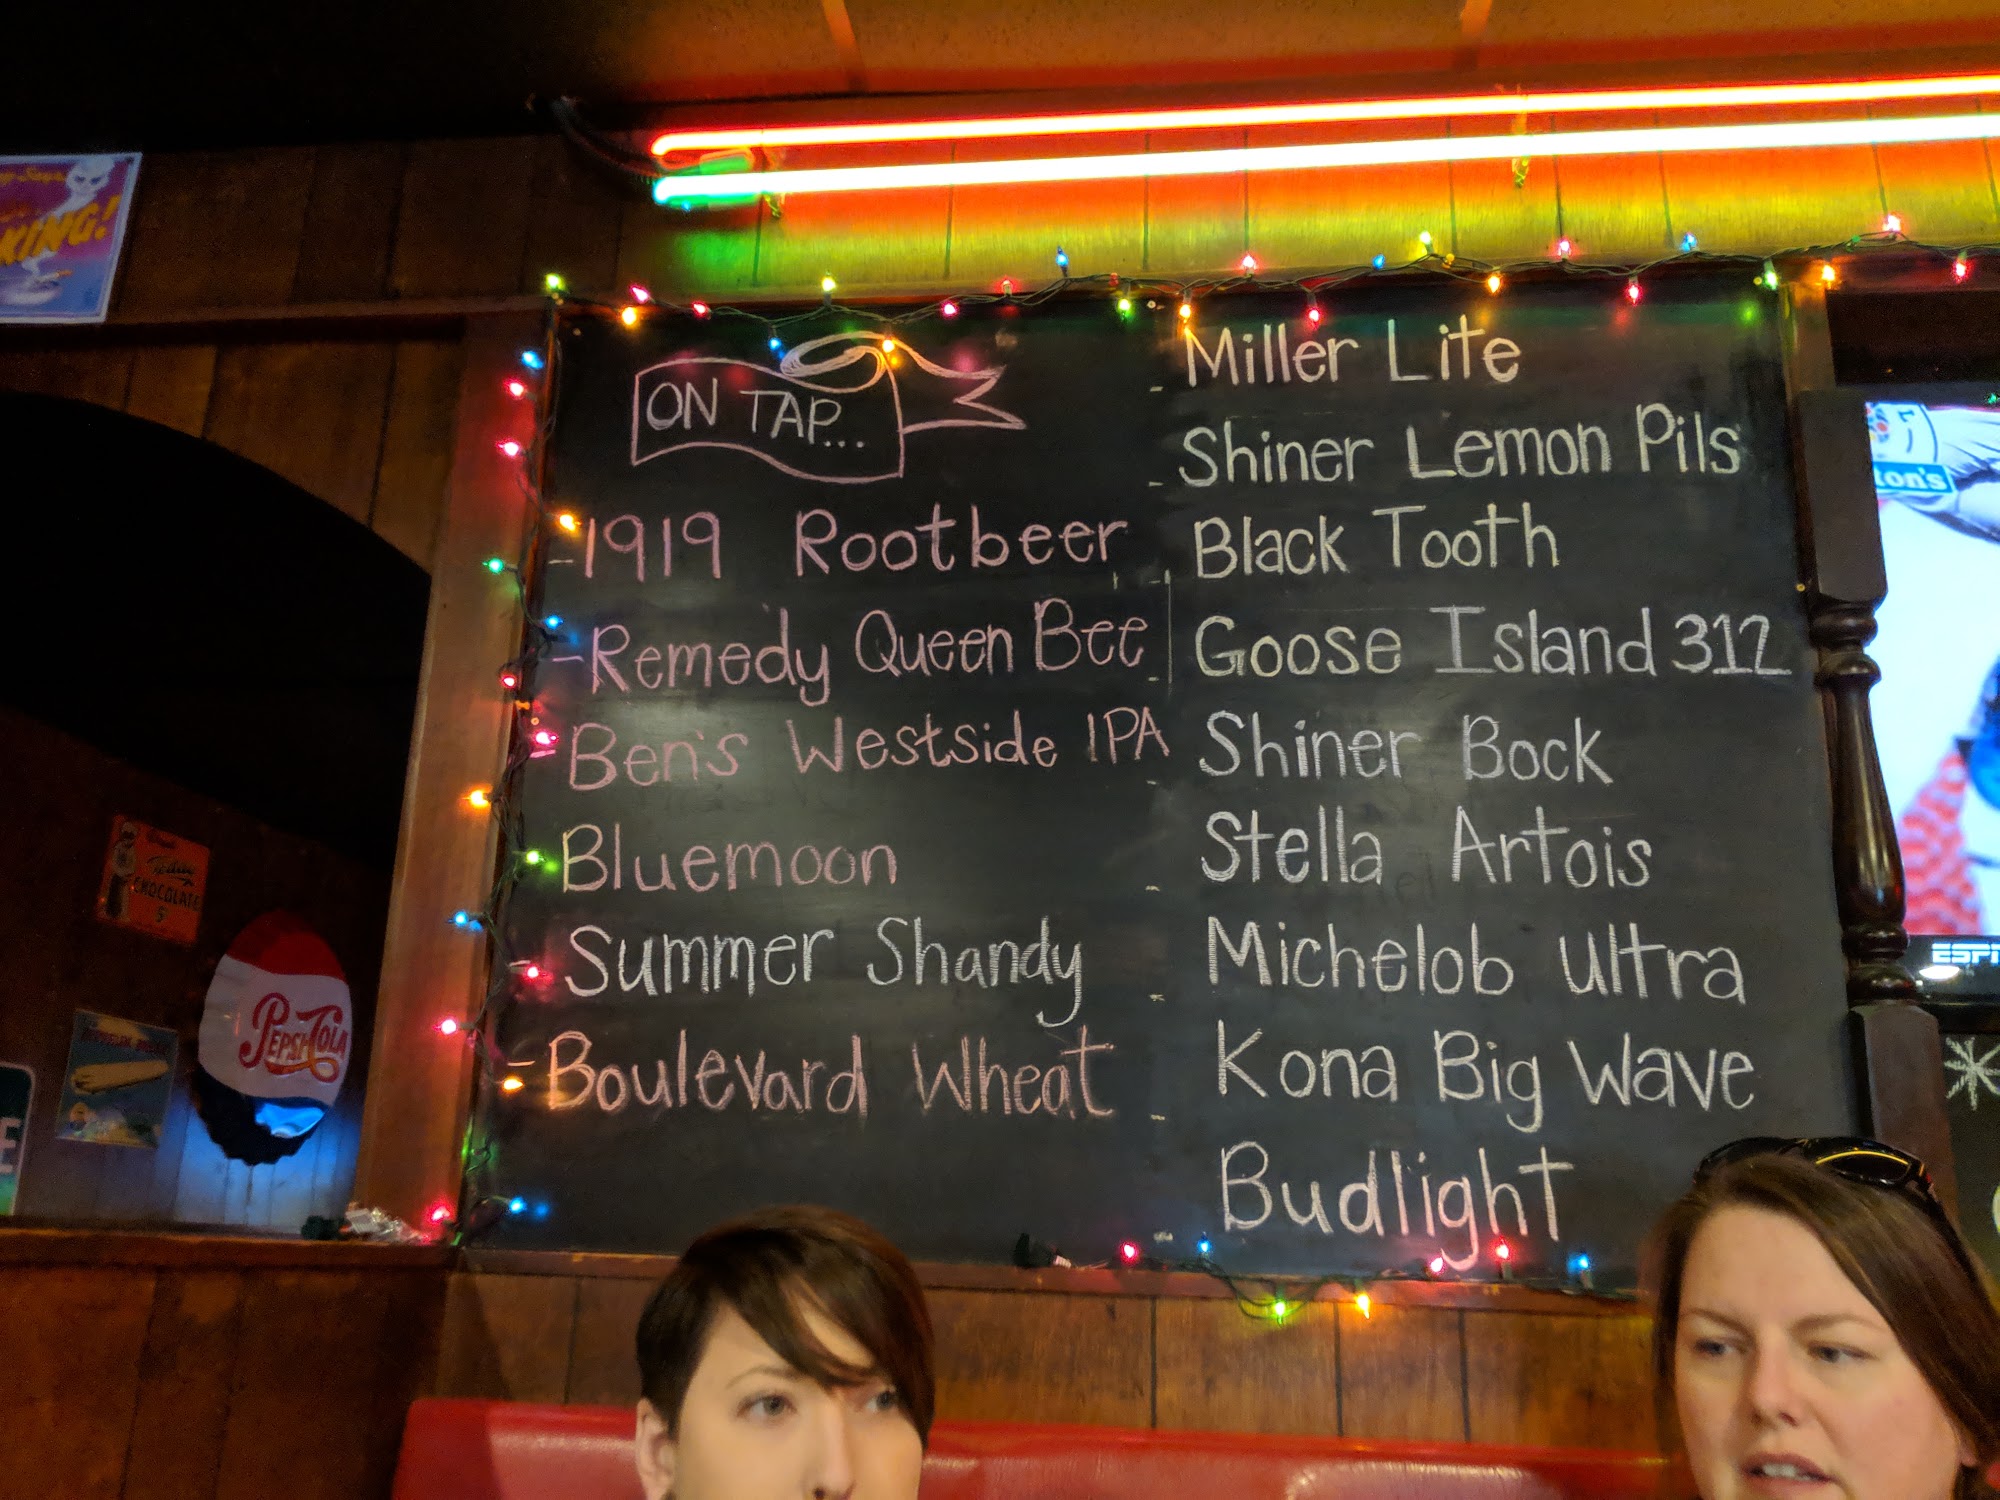 KING!
ON TAP...
- 1919 Rootbeer
- Remedy Queen Bee
- Ben's Westside IPA
Bluemoon
- Summer Shandy
- Boulevard Wheat
- Miller Lite
- Shiner Lemon Pils
- Black Tooth
- Goose Island 312
- Shiner Bock
- Stella Artois
- Michelob Ultra
- Kona Big Wave
- Budlight
CHOCOLATE
5¢
PEPSI COLA
E
ton's
ESPN